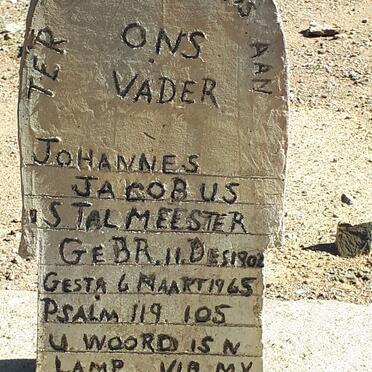 TER
AAN
ONS
VADER
JOHANNES
JACOBUS
STALMEESTER
GEBR. 11. DES 1902
GESTA 6 MAART 1965
PSALM 119 105
U WOORD IS N
LAMP VIR MY